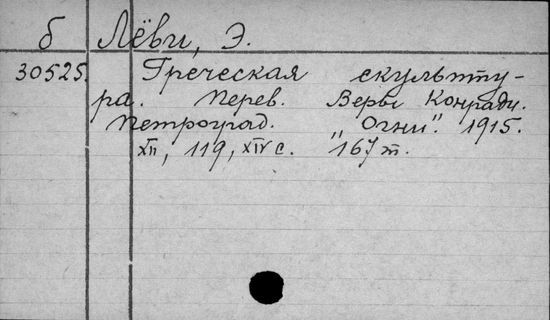 б Лёви, Э.
30525. Греческая скульпту-
ра. Перев. Веры Конради.
Петроград. „Огни“. 1915.
XII, 119, XIV с. 167 т.